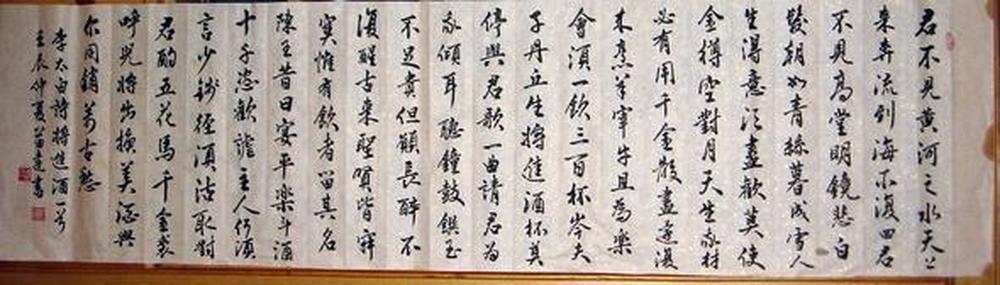 君不見黃河之水天上
來奔流到海不復回君
不見高堂明鏡悲白
髮朝如青絲暮成雪人
生得意須盡歡莫使
金樽空對月天生我材
必有用千金散盡還復
來烹羊宰牛且為樂
會須一飲三百杯岑夫
子丹丘生將進酒杯莫
停與君歌一曲請君為
我傾耳聽鐘鼓饌玉
不足貴但願長醉不
復醒古來聖賢皆寂
寞惟有飲者留其名
陳王昔日宴平樂斗酒
十千恣歡謔主人何須
言少錢徑須沽取對
君酌五花馬千金裘
呼兒將出換美酒與
尔同銷萬古愁
李太白詩將進酒一首
壬辰仲夏書